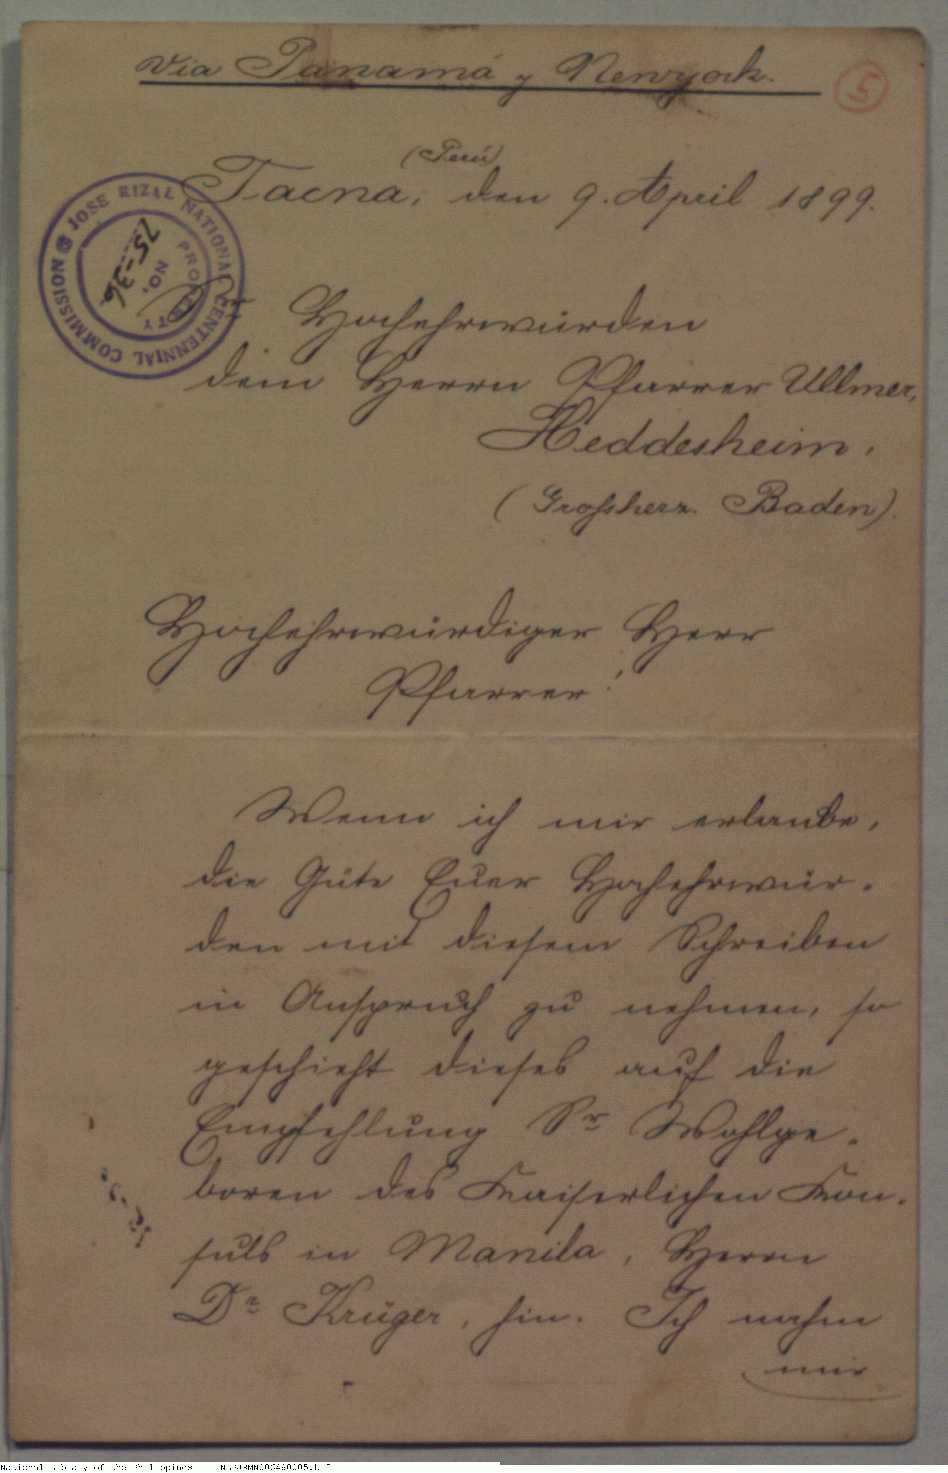 Via Panamá y Newyork.
5
(Perú)
Tacna, den 9. April 1899.
JOSE RIZAL NATIONAL CENTENNIAL COMMISSION
PROPERTY
NO.
75-36
Sr Hochehrwürden
dem Herrn Pfarrer Ullmer,
Heddesheim,
(Grossherz. Baden).
Hochehrwürdiger Herr
Pfarrer!
Wenn ich mir erlaube,
die Güte Euer Hochehrwür-
den mit diesem Schreiben
in Anspruch zu nehmen, so
geschieht dieses auf die
Empfehlung Sr Wohlge-
boren des Kaiserlichen Kon-
suls in Manila, Herrn
Dr Krüger, hin. Ich nahm
mir
National Library of the Philippines